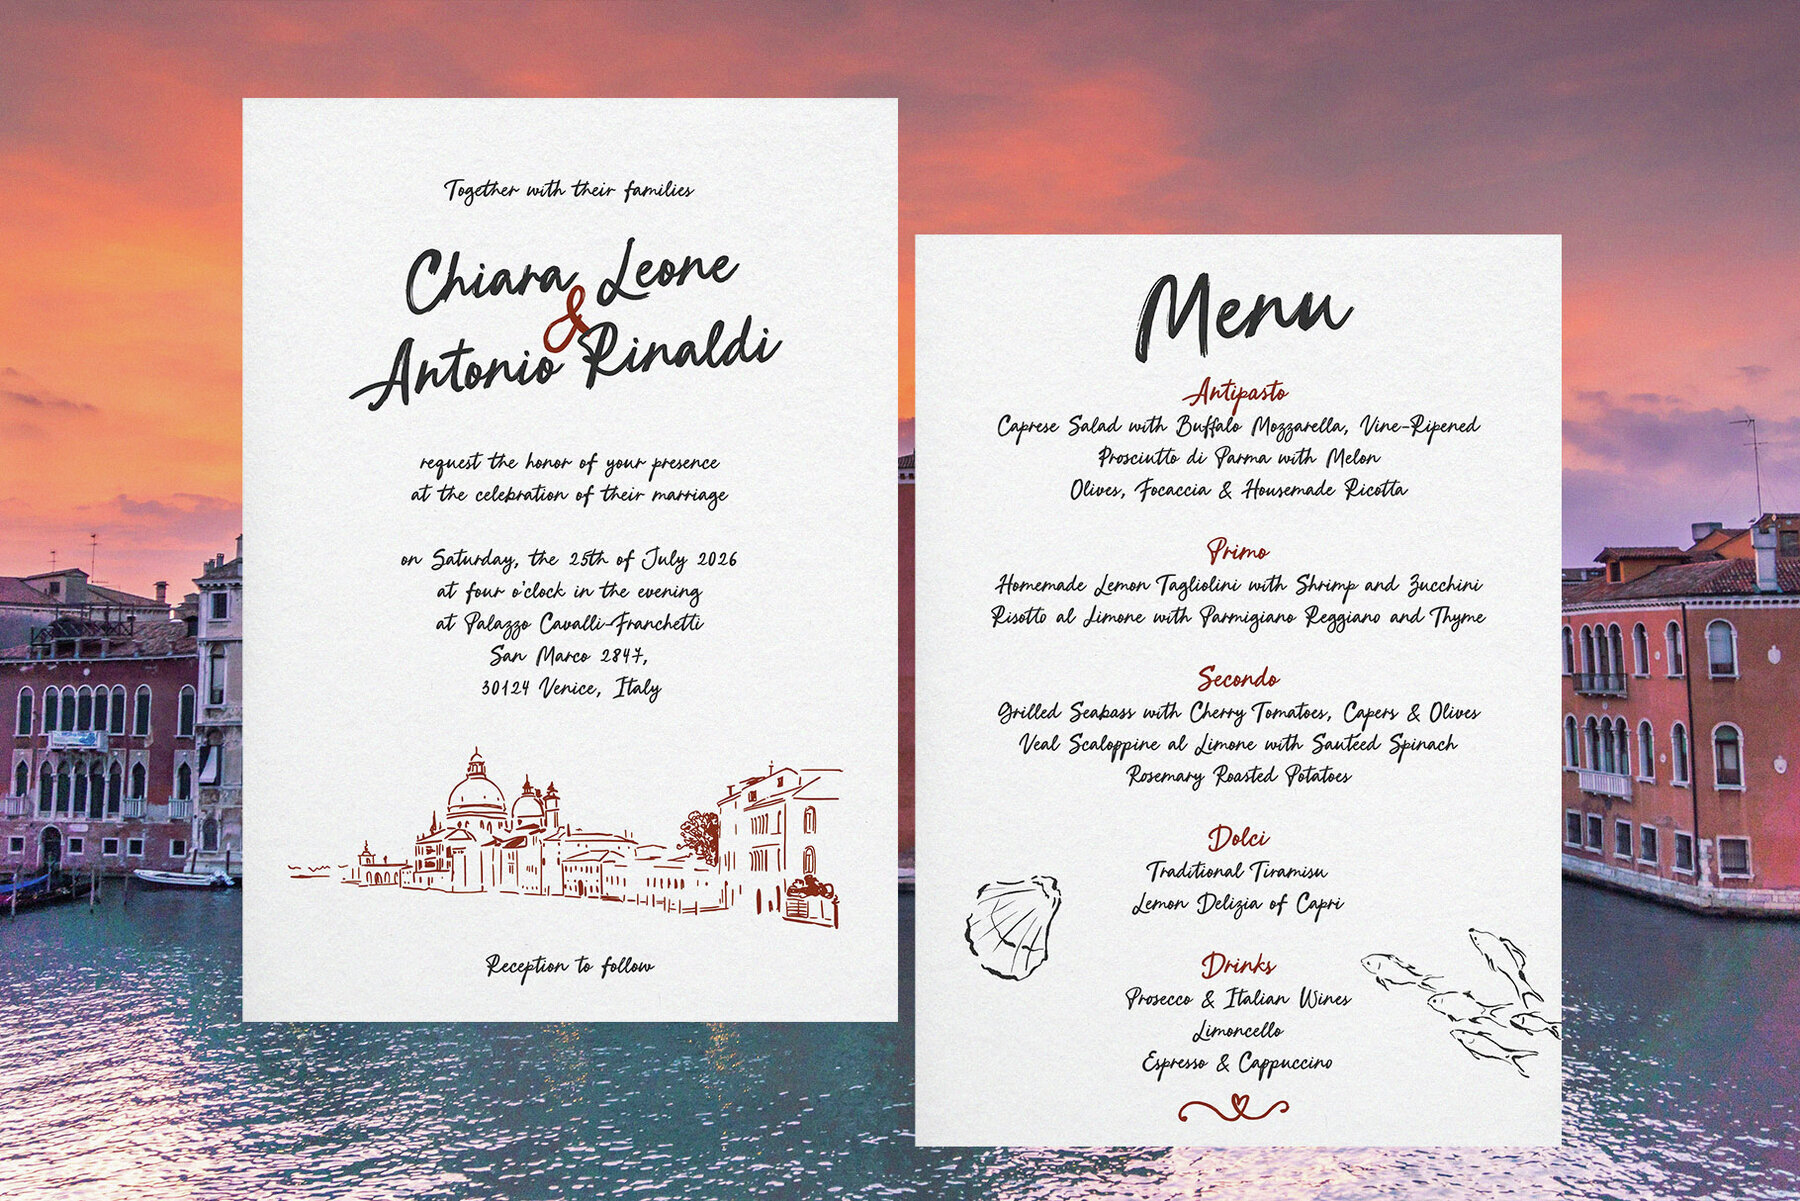 Together with their families
Chiara Leone
&
Antonio Rinaldi
request the honor of your presence
at the celebration of their marriage
on Saturday, the 25th of July 2026
at four o'clock in the evening
at Palazzo Cavalli-Franchetti
San Marco 2847,
30124 Venice, Italy
Reception to follow
Menu
Antipasto
Caprese Salad with Buffalo Mozzarella, Vine-Ripened
Prosciutto di Parma with Melon
Olives, Focaccia & Housemade Ricotta
Primo
Homemade Lemon Tagliolini with Shrimp and Zucchini
Risotto al Limone with Parmigiano Reggiano and Thyme
Secondo
Grilled Seabass with Cherry Tomatoes, Capers & Olives
Veal Scaloppine al Limone with Sautéed Spinach
Rosemary Roasted Potatoes
Dolci
Traditional Tiramisu
Lemon Delizia of Capri
Drinks
Prosecco & Italian Wines
Limoncello
Espresso & Cappuccino